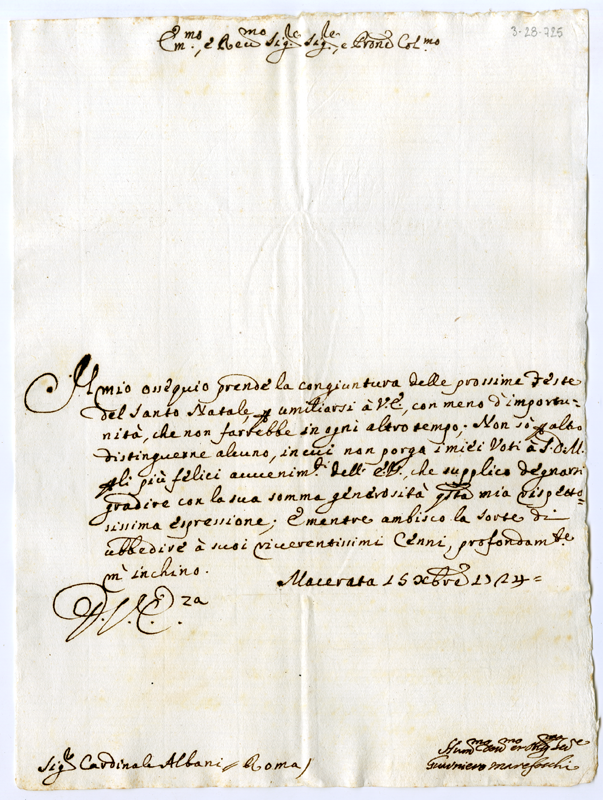 3-28-725
E.mo, e Rev.mo Sig.re Sig.re, e Pron̄e Col.mo
Il mio ossequio prende la congiuntura delle prossime Feste
del Santo Natale, p umiliarsi à V.E., con meno d'importu-
nità, che non farebbe in ogni altro tempo; Non sò p altro
distinguerne alcuno, in cui non porga i miei Voti à S.D.M.
p li più felici avvenim.ti dell'E.V., che supplico degnarsi
gradire con la sua somma generosità q̃sta mia rispetto-
sissima espressione; E mentre ambisco la sorte di
ubbedire à suoi riverentissimi Cenni, profondam.te
m'inchino.
Macerata 15 Xbre 1724=
D. V. E.za
Sig.r Cardinale Albani / Roma)
Hum.mo
Guarniero Marefoschi